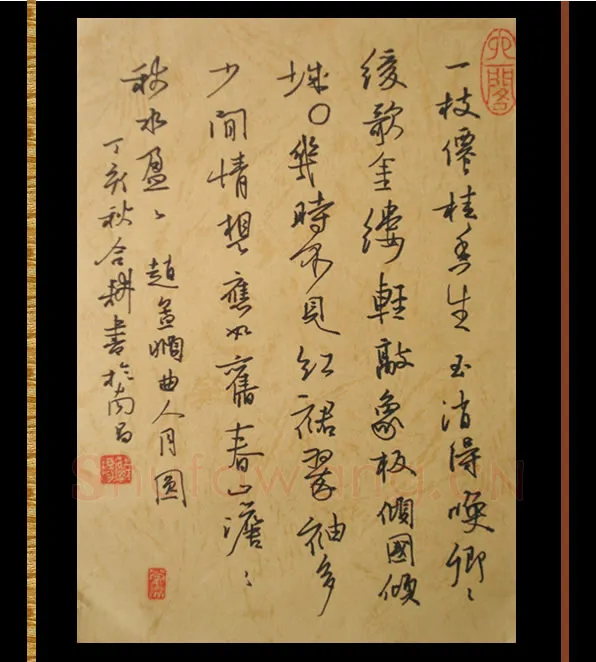 一枝僊桂香生玉消得喚卿〻
緩歌金縷輕敲象板傾國傾
城〇幾時不見紅裙翠袖多
少間情想應如舊春山澹〻
秋水盈〻
趙孟頫曲人月圓
丁亥秋合耕書於南昌
Shufawang.CN